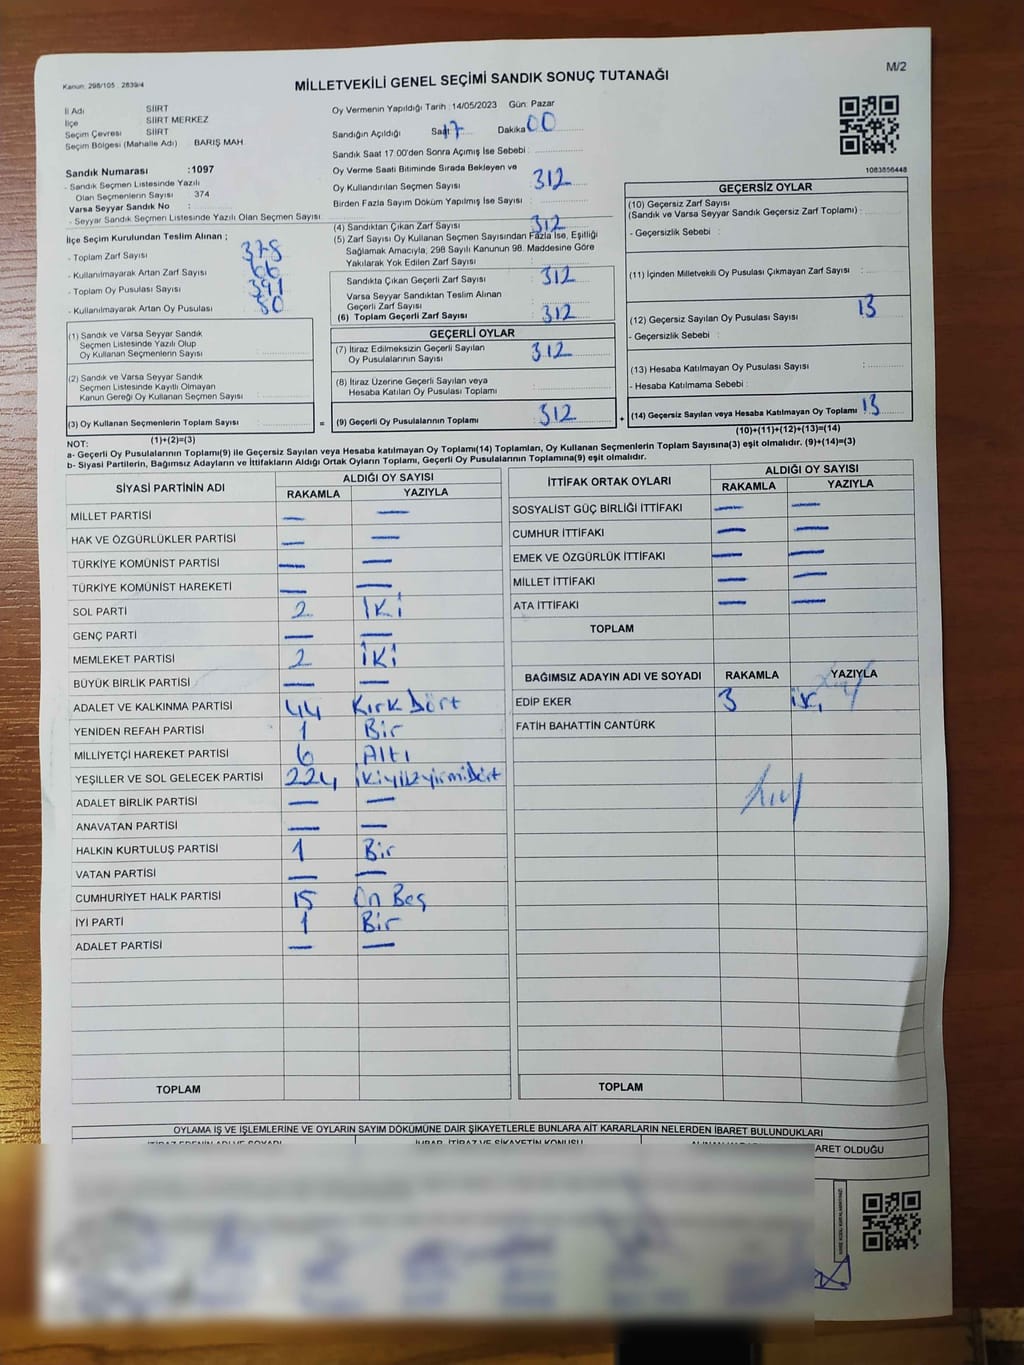 Kanun: 298/105 : 2839/4
M/2
MİLLETVEKİLİ GENEL SEÇİMİ SANDIK SONUÇ TUTANAĞI
İl Adı SİİRT
İlçe SİİRT MERKEZ
Seçim Çevresi SİİRT
Seçim Bölgesi (Mahalle Adı) BARIŞ MAH
Sandık Numarası :1097
- Sandık Seçmen Listesinde Yazılı
Olan Seçmenlerin Sayısı 374
Varsa Seyyar Sandık No :
- Seyyar Sandık Seçmen Listesinde Yazılı Olan Seçmen Sayısı :
İlçe Seçim Kurulundan Teslim Alınan ;
- Toplam Zarf Sayısı : 378
- Kullanılmayarak Artan Zarf Sayısı : 66
- Toplam Oy Pusulası Sayısı :
- Kullanılmayarak Artan Oy Pusulası :
(1) Sandık ve Varsa Seyyar Sandık
Seçmen Listesinde Yazılı Olup
Oy Kullanan Seçmenlerin Sayısı :
(2) Sandık ve Varsa Seyyar Sandık
Seçmen Listesinde Kayıtlı Olmayan
Kanun Gereği Oy Kullanan Seçmen Sayısı :
(3) Oy Kullanan Seçmenlerin Toplam Sayısı :
(1)+(2)=(3)
Oy Vermenin Yapıldığı Tarih :14/05/2023 Gün: Pazar
Sandığın Açıldığı Saat 17 Dakika 00
Sandık Saat 17:00'den Sonra Açımış İse Sebebi :
Oy Verme Saati Bitiminde Sırada Bekleyen ve
Oy Kullandırılan Seçmen Sayısı : 312
Birden Fazla Sayım Döküm Yapılmış İse Sayısı :
(4) Sandıktan Çıkan Zarf Sayısı : 312
(5) Zarf Sayısı Oy Kullanan Seçmen Sayısından Fazla İse, Eşitliği
Sağlamak Amacıyla, 298 Sayılı Kanunun 98. Maddesine Göre
Yakılarak Yok Edilen Zarf Sayısı :
Sandıkta Çıkan Geçerli Zarf Sayısı : 312
Varsa Seyyar Sandıktan Teslim Alınan
Geçerli Zarf Sayısı :
(6) Toplam Geçerli Zarf Sayısı : 312
GEÇERLİ OYLAR
(7) İtiraz Edilmeksizin Geçerli Sayılan
Oy Pusulalarının Sayısı : 312
(8) İtiraz Üzerine Geçerli Sayılan veya
Hesaba Katılan Oy Pusulası Toplamı :
= (9) Geçerli Oy Pusulalarının Toplamı : 312
1083856448
GEÇERSİZ OYLAR
(10) Geçersiz Zarf Sayısı
(Sandık ve Varsa Seyyar Sandık Geçersiz Zarf Toplamı) :
- Geçersizlik Sebebi :
(11) İçinden Milletvekili Oy Pusulası Çıkmayan Zarf Sayısı :
(12) Geçersiz Sayılan Oy Pusulası Sayısı : 13
- Geçersizlik Sebebi :
(13) Hesaba Katılmayan Oy Pusulası Sayısı :
- Hesaba Katılmama Sebebi :
+ (14) Geçersiz Sayılan veya Hesaba Katılmayan Oy Toplamı : 13
(10)+(11)+(12)+(13)=(14)
NOT:
a- Geçerli Oy Pusulalarının Toplamı(9) ile Geçersiz Sayılan veya Hesaba katılmayan Oy Toplamı(14) Toplamları, Oy Kullanan Seçmenlerin Toplam Sayısına(3) eşit olmalıdır. (9)+(14)=(3)
b- Siyasi Partilerin, Bağımsız Adayların ve İttifakların Aldığı Ortak Oyların Toplamı, Geçerli Oy Pusulalarının Toplamına(9) eşit olmalıdır.
SİYASİ PARTİNİN ADI ALDIĞI OY SAYISI
RAKAMLA YAZIYLA
MİLLET PARTİSİ — —
HAK VE ÖZGÜRLÜKLER PARTİSİ — —
TÜRKİYE KOMÜNİST PARTİSİ — —
TÜRKİYE KOMÜNİST HAREKETİ — —
SOL PARTİ 2 İKİ
GENÇ PARTİ — —
MEMLEKET PARTİSİ 2 İKİ
BÜYÜK BİRLİK PARTİSİ — —
ADALET VE KALKINMA PARTİSİ 44 Kırk Dört
YENİDEN REFAH PARTİSİ 1 Bir
MİLLİYETÇİ HAREKET PARTİSİ 6 Altı
YEŞİLLER VE SOL GELECEK PARTİSİ 224 ikiyüzyirmiDört
ADALET BİRLİK PARTİSİ — —
ANAVATAN PARTİSİ — —
HALKIN KURTULUŞ PARTİSİ 1 Bir
VATAN PARTİSİ — —
CUMHURİYET HALK PARTİSİ 15 On Beş
İYİ PARTİ 1 Bir
ADALET PARTİSİ — —
TOPLAM
İTTİFAK ORTAK OYLARI ALDIĞI OY SAYISI
RAKAMLA YAZIYLA
SOSYALİST GÜÇ BİRLİĞİ İTTİFAKI — —
CUMHUR İTTİFAKI — —
EMEK VE ÖZGÜRLÜK İTTİFAKI — —
MİLLET İTTİFAKI — —
ATA İTTİFAKI — —
TOPLAM
BAĞIMSIZ ADAYIN ADI VE SOYADI RAKAMLA YAZIYLA
EDİP EKER 3
FATİH BAHATTİN CANTÜRK
TOPLAM
OYLAMA İŞ VE İŞLEMLERİNE VE OYLARIN SAYIM DÖKÜMÜNE DAİR ŞİKAYETLERLE BUNLARA AİT KARARLARIN NELERDEN İBARET BULUNDUKLARI
ARET OLDUĞU